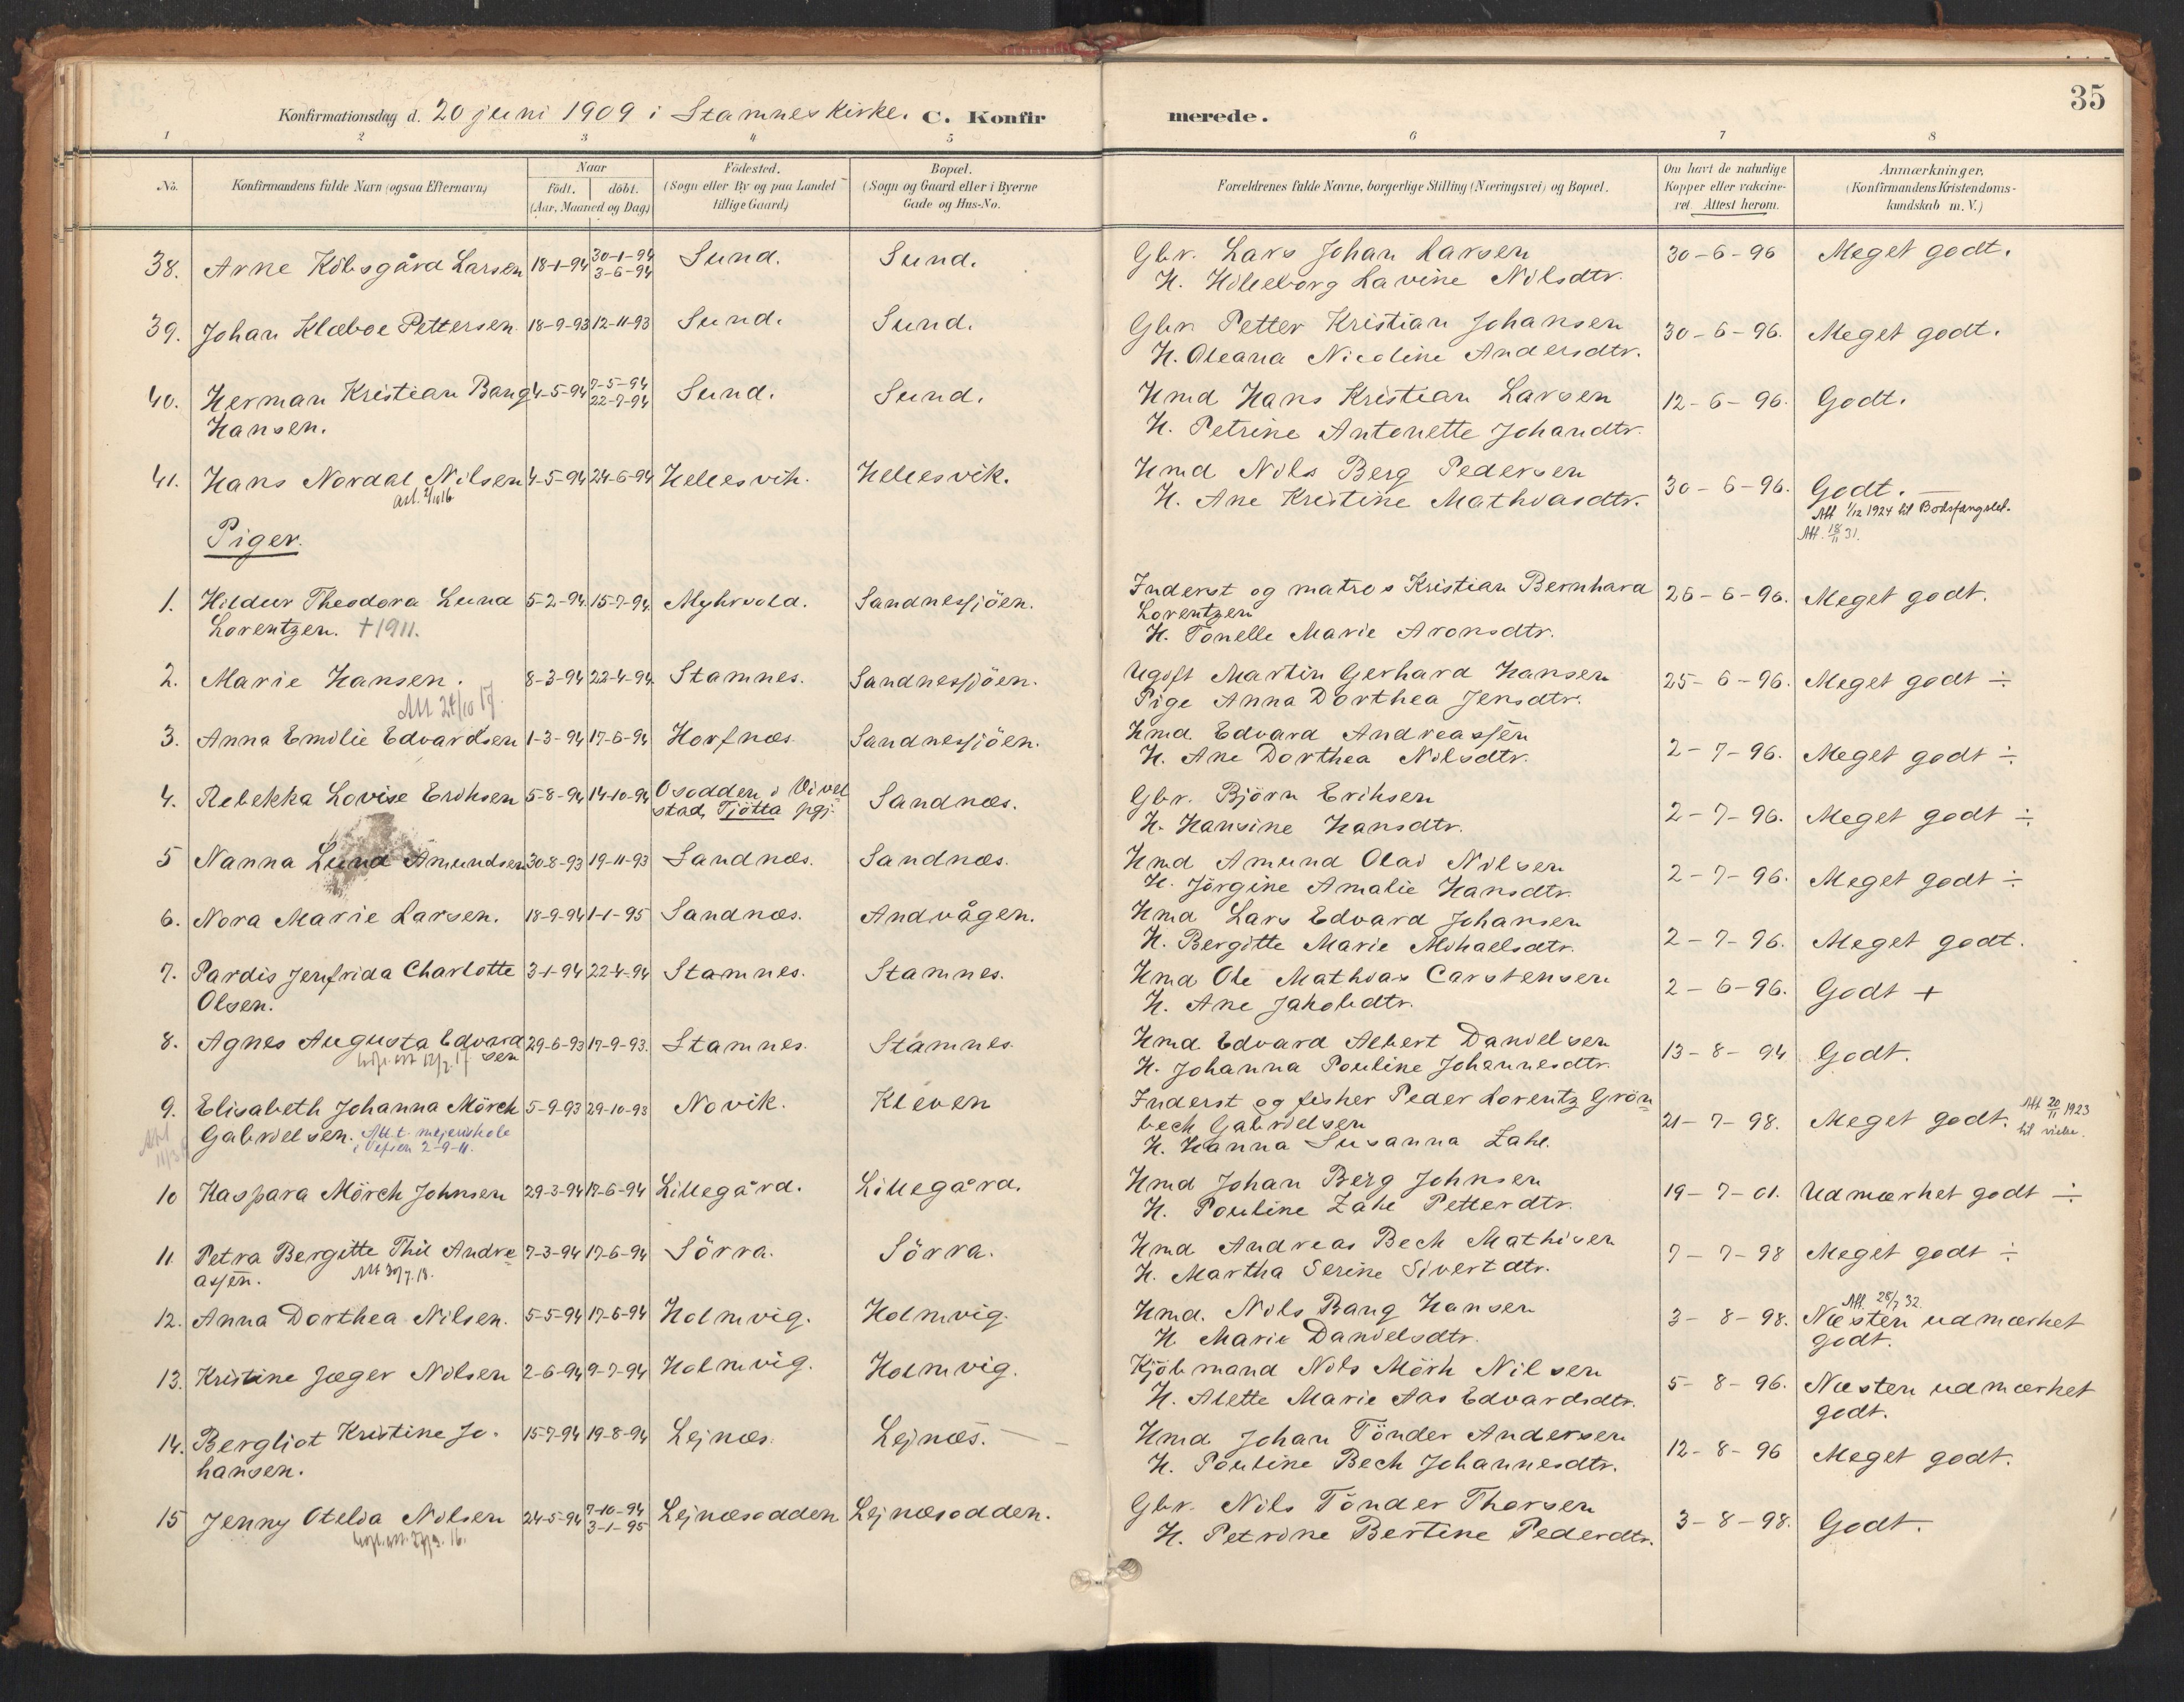 35
Konfirmationsdag d. 20 juni 1909 i Stamnes Kirke. C. Konfir merede.
1 2 3 4 5 6 7 8
No. Konfirmandens fulde Navn (ogsaa Efternavn) Naar födt. döbt. (Aar, Maaned og Dag) Födested. (Sogn eller By og paa Landet tillige Gaard) Bopæl. (Sogn og Gaard eller i Byerne Gade og Hus-No. Forældrenes fulde Navne, borgerlige Stilling (Næringsvei) og Bopæl. Om havt de naturlige Kopper eller vakcineret. Attest herom. Anmærkninger, (Konfirmandens Kristendomskundskab m. V.)
38. Arne Kibsgård Larsen 18-1-94 30-1-94 Sund. Sund. Gbr. Lars Johan Larsen 30-6-96 Meget godt.
3-6-94 H. Hilleborg Lavine Nilsdtr.
39. Johan Klæboe Pettersen 18-9-93 12-11-93 Sund. Sund. Gbr. Petter Kristian Johansen 30-6-96. Meget godt.
H. Oleana Nicoline Andersdtr.
40. Herman Kristian Bang 4-5-94 7-5-94 Sund. Sund. Hmd Hans Kristian Larsen 12-6-96. Godt.
Hansen. 22-7-94 H. Petrine Antonette Johandtr.
41. Hans Nordal Nilsen 4-5-94 24-6-94 Hellesvik. Hellesvik. Hmd Nils Berg Pedersen 30-6-96. Godt.
H. Ane Kristine Mathiasdtr.
Att 1/12 1924 til Bodsfængslet.
Att. 18/11 31.
Piger.
1. Hildur Theodora Lund 5-2-94 15-7-94 Myhrvold. Sandnessjöen. Inderst og matros Kristian Bernhard 26-6-96. Meget godt.
Lorentzen. +1911. Lorentzen
H. Tonelle Marie Aronsdtr.
2. Marie Hansen. 8-3-94 22-4-94 Stamnes. Sandnessjöen. Ugift Martin Gerhard Hansen 25-6-96. Meget godt ÷
Att 24/10 17 Pige Anna Dorthea Jensdtr.
3. Anna Emilie Edvardsen 1-3-94 17-6-94 Horfnæs Sandnessjöen. Hmd. Edvard Andreassen 2-7-96. Meget godt ÷
H. Ane Dorthea Nilsdtr.
4. Rebekka Lovise Eriksen 5-8-94 14-10-94 Osodden i Vivelstad, Tjötta pgj. Sandnæs. Gbr. Björn Eriksen 2-7-96. Meget godt ÷
H. Hansine Hansdtr.
5 Nanna Lund Amundsen 30-8-93 19-11-93 Sandnæs. Sandnæs. Hmd Amund Olai Nilsen 2-7-96. Meget godt ÷
H. Jörgine Amalie Hansdtr.
6. Nora Marie Larsen. 18-9-94 1-1-95 Sandnæs. Andvågen. Hmd Lars Edvard Johansen 2-7-96. Meget godt.
H. Bergitte Marie Mihaelsdtr.
7. Pardis Jenfrida Charlotte 3-1-94 22-4-94 Stamnes. Stamnes. Hmd Ole Mathias Carstensen 2-6-96. Godt +
Olsen. H. Ane Jakobdtr.
8. Agnes Augusta Edvardsen 29-6-93 17-9-93. Stamnes. Stamnes. Hmd. Edvard Albert Danielsen 13-8-94 Godt.
H. Johanna Pouline Johannesdtr.
9. Elisabeth Johanna Mörch 5-9-93 29-10-93 Novik. Kleven Inderst og fisher Peder Lorentz Grönbech Gabrielsen 21-7-98. Meget godt. Att 20/11 1923 til vielse.
Gabrielsen. Att t. mejeriskole i Vefsen 2-9-11. H. Hanna Susanna Zahl.
10 Kaspara Mörch Johnsen 29-3-94 17-6-94 Lillegård. Lillegård. Hmd Johan Berg Johnsen 19-7-01. Udmærket godt ÷
H. Pouline Zahl Petterdtr.
11 Petra Bergitte Thil Andreassen. 7-3-94 17-6-94 Sörra. Sörra. Hmd Andreas Bech Mathisen 7-7-98 Meget godt ÷
Att 30/7.18. H. Martha Serine Sivertdtr.
12. Anna Dorthea Nilsen. 5-5-94 17-6-94 Holmvig. Holmvig. Hmd. Nils Bang Hansen 3-8-98. Att. 28/7 32. Næsten udmærket godt.
H. Marie Danielsdtr.
13. Kristine Jæger Nilsen 2-6-94 9-7-94 Holmvig. Holmvig. Kjöbmand Nils Mörk Nilsen 5-8-96. Næsten udmærket godt.
H. Alette Marie Aas Edvardsdtr.
14. Bergliot Kristine Johansen. 15-7-94 19-8-94 Lejnæs. Lejnæs. Hmd Johan Tönder Andersen 12-8-96 Meget godt.
H. Pouline Bech Johannesdtr.
15 Jenny Otelia Nilsen 24-5-94 7-10-94 Lejnæsodden Lejnæsodden. Gbr. Nils Tönder Thorsen 3-8-98. Godt.
3-1-95 H. Petrine Bertine Pederdtr.